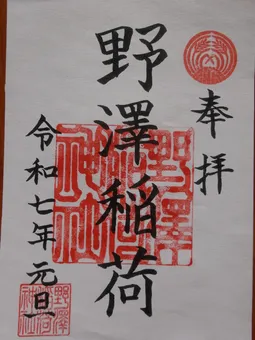 奉拝
野澤稲荷
野澤稲荷神社
令和七年元旦
野澤稲荷神社